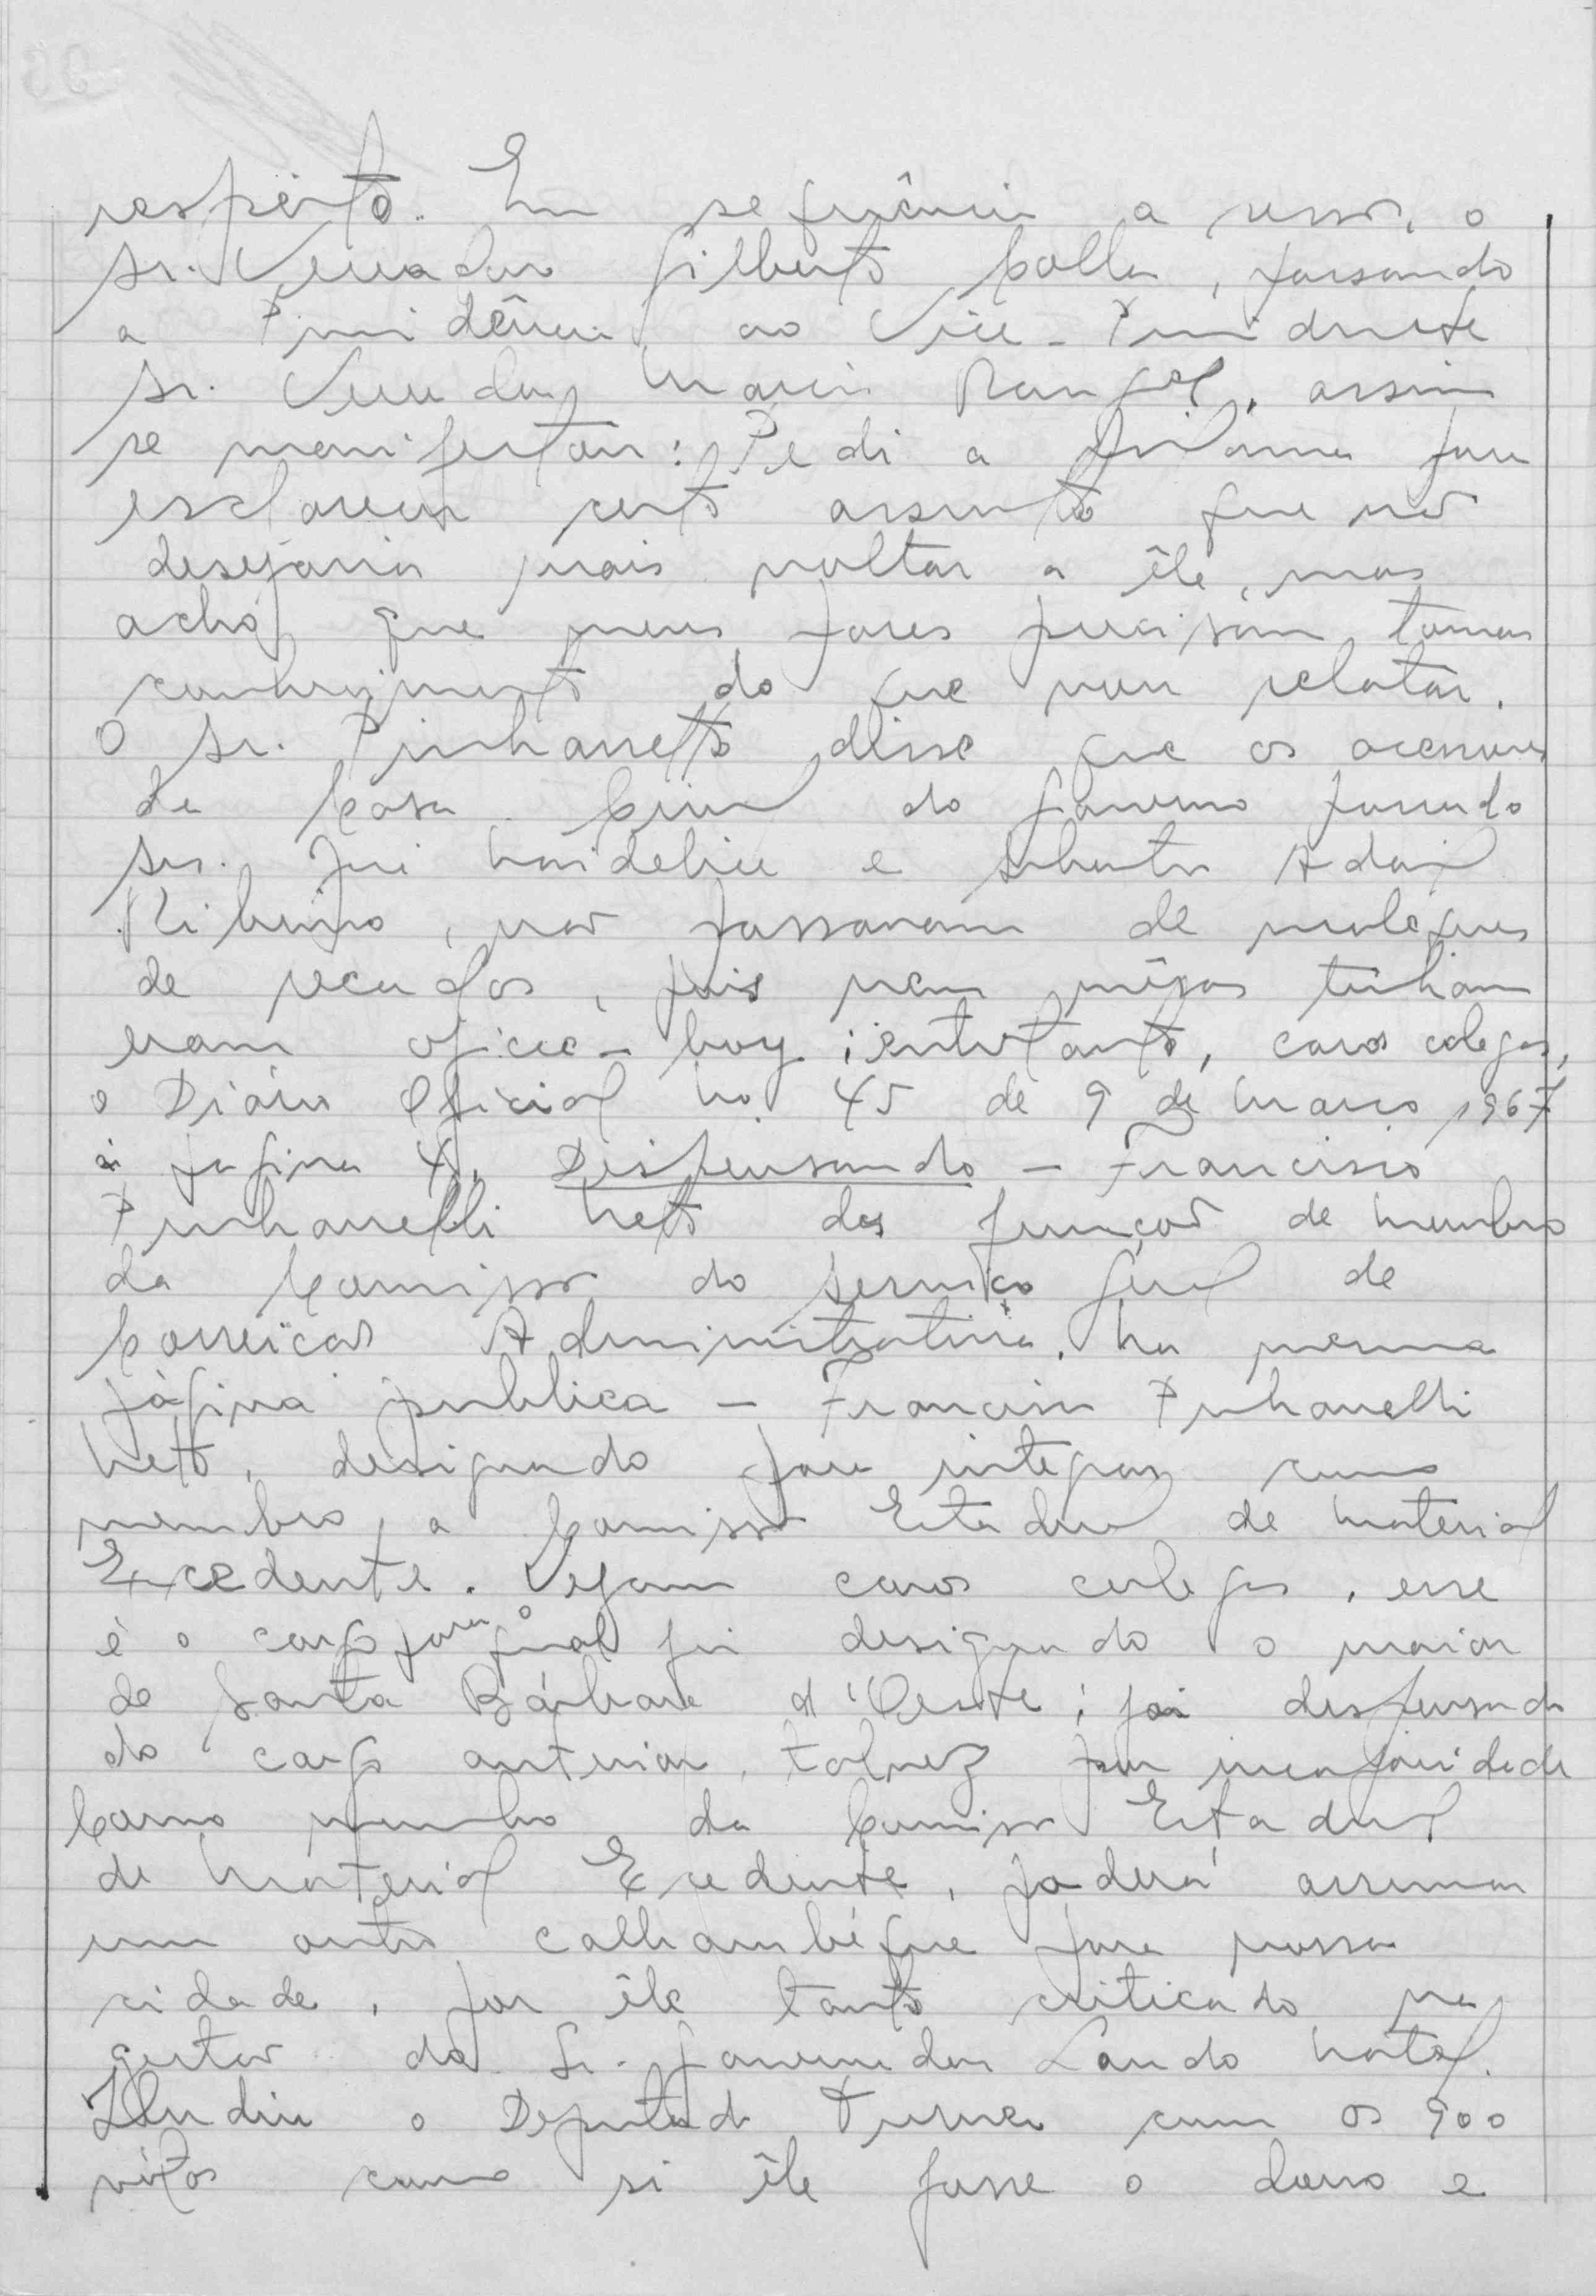 respeito. Em sequência a sessão, o
Sr. Vereador Gilberto Colla, passando
a Presidência ao Vice-Presidente
Sr. Vereador Mario Rangel, assim
se manifestou: Pedi a palavra para
esclarecer certo assunto que não
desejaria mais voltar a êle, mas
acho que meus pares precisam tomar
conhecimento do que vou relatar.
O Sr. Pinhanelli disse que os acessores
da Casa Civil do Governo passado
srs. e Adail
Ribeiro, não passavam de moleques
de recados, pois nem mêsas tinham
eram office-boy; entretanto, caros colegas,
o Diário Oficial no. 45 de 9 de março 1967
à pagina 4, Dispensando - Francisco
Pinhanelli Neto das funções de membro
da Comissão do Serviço Geral de
Correições Administrativa. Na mesma
página publica - Francisco Pinhanelli
Neto, designado para integrar como
membro, a Comissão Estadual de Material
Excedente. Vejam caros colegas, esse
é o cargo para o qual foi designado o maior
de Santa Bárbara d'Oeste; foi dispensado
do cargo anterior, talvez por incapacidade
Como membro da Comissão Estadual
de Material Excedente, poderá arrumar
um outro calhambéque para nossa
cidade, por êle tanto criticado na
gestão do Sr. Governador Laudo Natel.
Iludiu o Deputado com os 900
vótos como si êle fosse o dono e